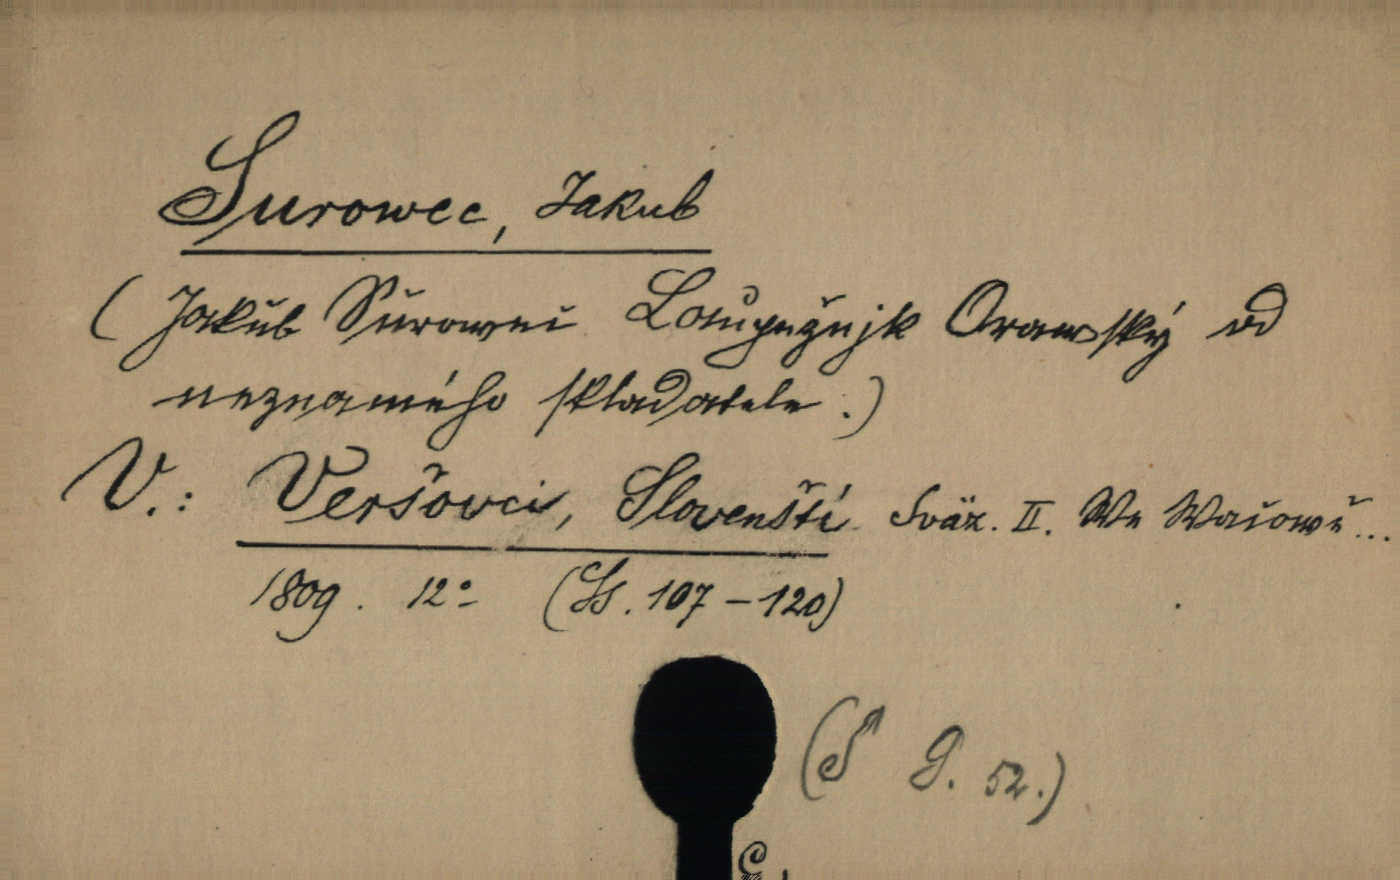 Surowec, Jakub
(Jakub Surowec Laupežnjk Orawský od
neznamého skladatele.)
V.: Veršovci, Slovenští Sväz. II. We Wacowě...
1809. 12º (Ss. 107-120)
(S G. 52.)